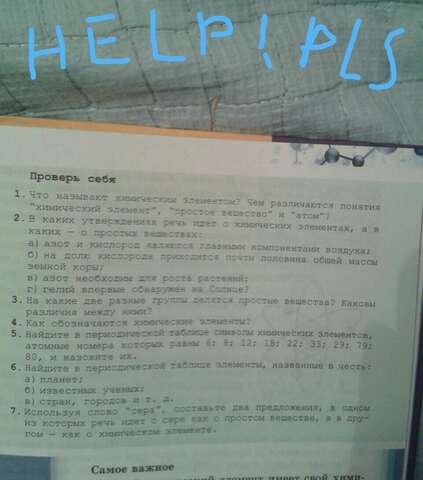 HELP! PLS
Проверь себя
1. Что называют химическим элементом? Чем различаются понятия
"химический элемент", "простое вещество" и "атом"?
2. В каких утверждениях речь идет о химических элементах, а в
каких — о простых веществах:
а) азот и кислород являются главными компонентами воздуха;
б) на долю кислорода приходится почти половина общей массы
земной коры;
в) азот необходим для роста растений;
г) гелий впервые обнаружен на Солнце?
3. На какие две разные группы делятся простые вещества? Каковы
различия между ними?
4. Как обозначаются химические элементы?
5. Найдите в периодической таблице символы химических элементов,
атомные номера которых равны 6; 8; 12; 18; 22; 33; 29; 79;
80, и назовите их.
6. Найдите в периодической таблице элементы, названные в честь:
а) планет;
б) известных ученых;
в) стран, городов и т. д.
7. Используя слово "сера", составьте два предложения, в одном
из которых речь идет о сере как о простом веществе, а в дру-
гом — как о химическом элементе.
Самое важное
элемент имеет свой хими-